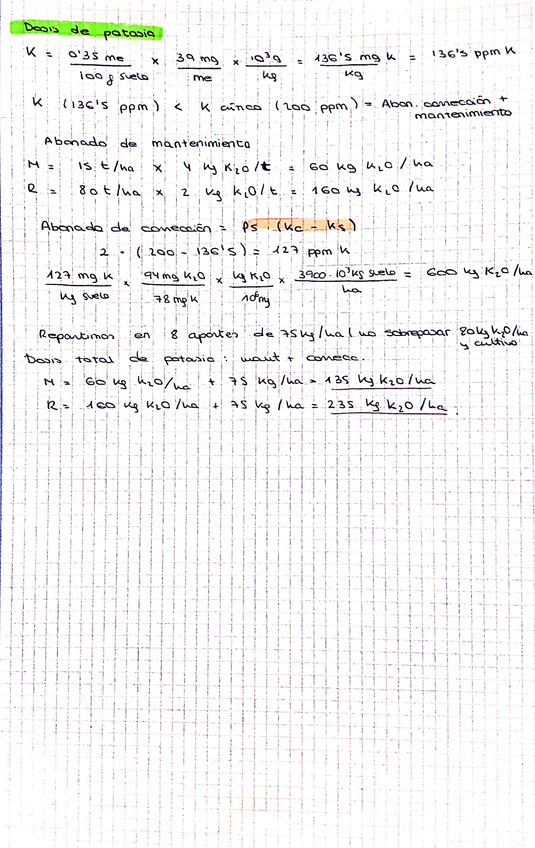 Dosis de potasio
K = 0'35 me / 100 g suelo × 39 mg / me × 10³g / kg = 136'5 mg K / kg = 136'5 ppm K
K (136'5 ppm) < K cínco (200 ppm) = Abon. corrección +
mantenimiento
Abonado de mantenimiento
M = 15 t/ha × 4 kg K₂O/t = 60 kg K₂O/ha
R = 80 t/ha × 2 kg K₂O/t = 160 kg K₂O/ha
Abonado de corrección = Ps · (Kc - Ks)
2 · (200 - 136'5) = 127 ppm K
127 mg K / kg suelo × 94 mg K₂O / 78 mg K × kg K₂O / 10⁶mg × 3900·10³ kg suelo / ha = 600 kg K₂O/ha
Repartimos en 8 aportes de 75 kg/ha (no sobrepasar 80 kg K₂O/ha
y cultivo
Dosis total de potasio: mant + correcc.
M = 60 kg K₂O/ha + 75 kg/ha = 135 kg K₂O/ha
R = 160 kg K₂O/ha + 75 kg/ha = 235 kg K₂O/ha.